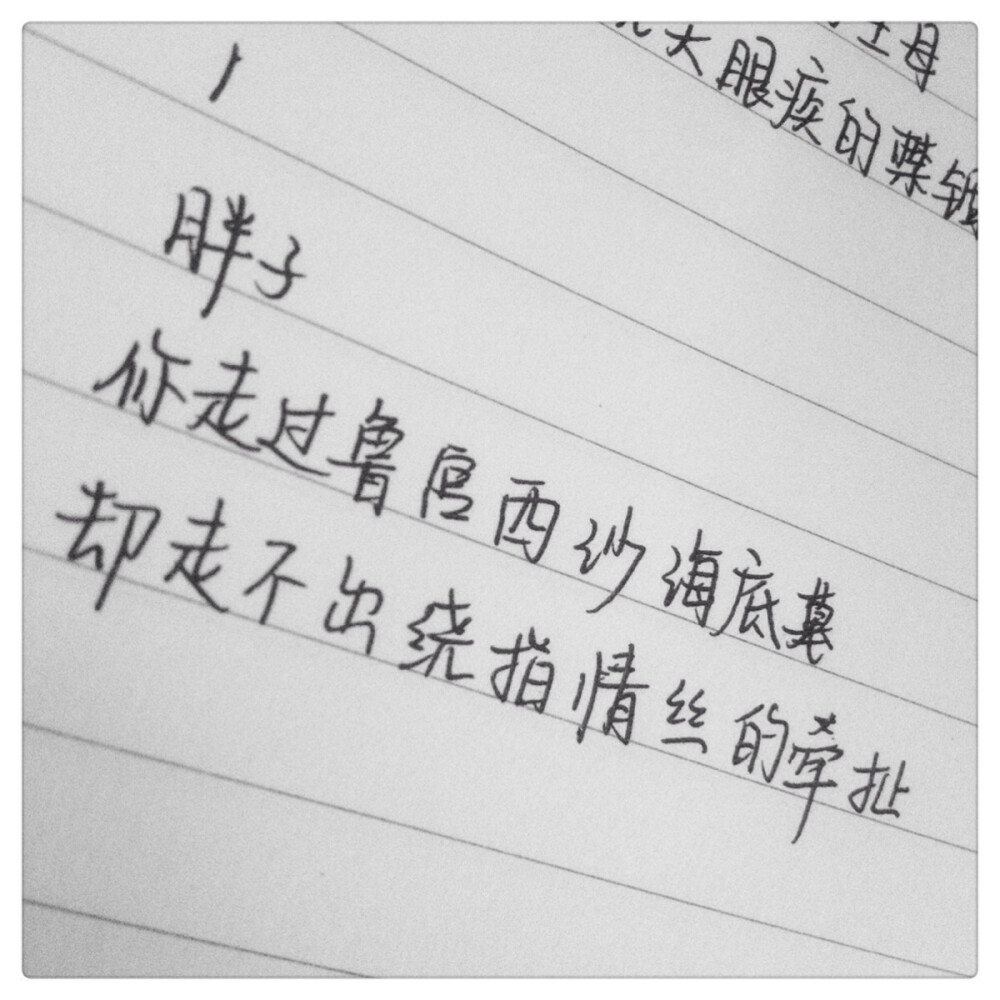 王母
天眼疾的禁锢
胖子
你走过鲁宫西沙海底墓
却走不出绕指情丝的牵扯